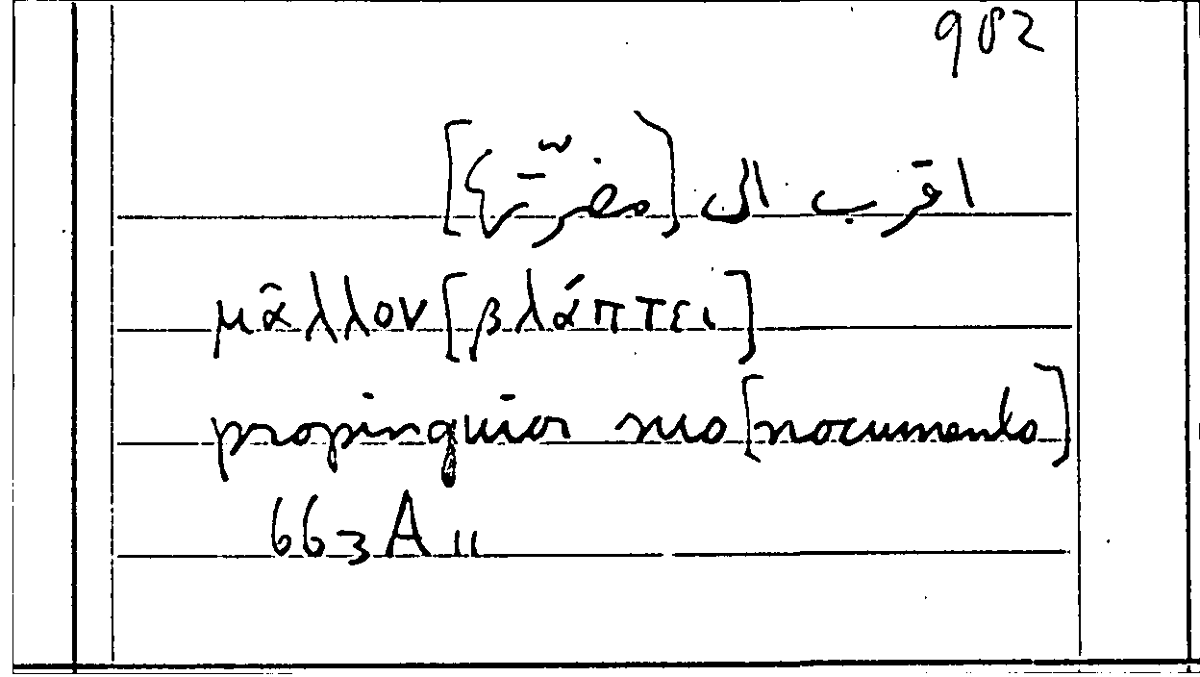 982
اقرب الى [مضرّته]
μᾶλλον [βλάπτει]
propinquior suo [nocumento]
663 A 11